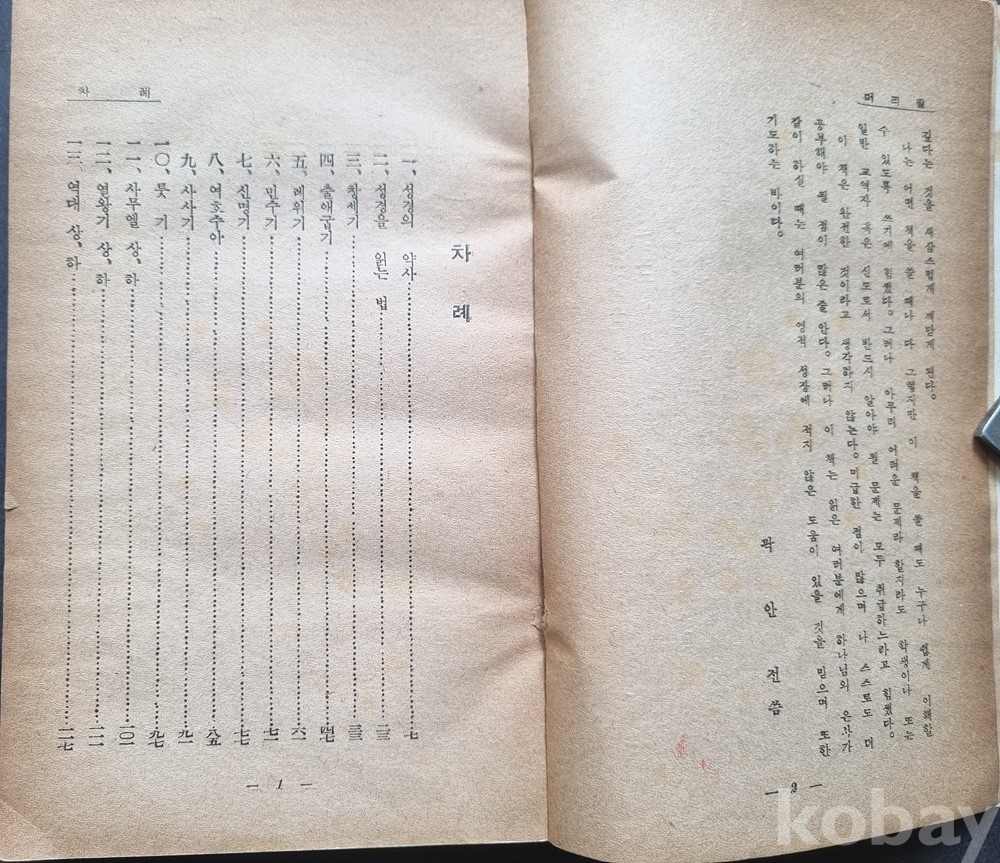 머리말
깊다는 것을 새삼스럽게 깨닫게 된다.
나는 어떤 책을 쓸 때나 다 그렇지만 이 책을 쓸 때도 누구나 쉽게 이해할
수 있도록 쓰기에 힘썼다. 그러나 아무리 어려운 문제라 할지라도 학생이나 또는
일반 교역자 혹은 신도로서 반드시 알아야 될 문제는 모두 취급하느라고 힘썼다.
이 책은 완전한 것이라고 생각하지 않는다. 미급한 점이 많으며 나 스스로도 더
공부해야 될 점이 많은 줄 안다. 그러나 이 책는 읽은 여러분에게 하나님의 은사가
같이 하실 때는 여러분의 영적 성장에 적지 않은 도움이 있을 것을 믿으며 또한
기도하는 바이다.
곽안전 씀
— 2 —
차례
차례
一、성경의 약사……七
二、성경을 읽는 법……二三
三、창세기……三三
四、출애굽기……四七
五、레위기……六一
六、민수기……七一
七、신명기……七七
八、여호수아……八五
九、사사기……九一
一〇、룻기……九七
一一、사무엘 상、하……一〇一
一二、열왕기 상、하……一一一
一三、역대 상、하……一二七
— 1 —
kobay